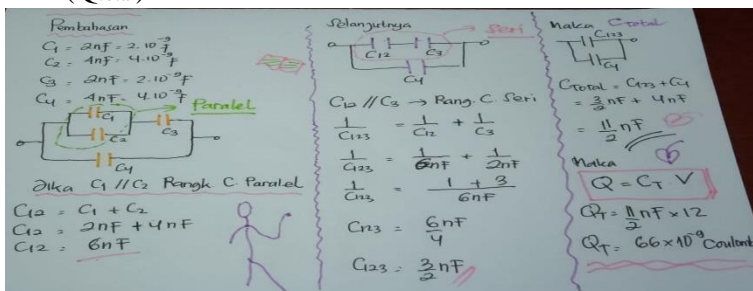 Pembahasan
C1 = 2nF = 2.10⁻⁹F
C2 = 4nF = 4.10⁻⁹F
C3 = 2nF = 2.10⁻⁹F
C4 = 4nF = 4.10⁻⁹F
Paralel
C1
C2
C3
C4
Jika C1 // C2 Rangk C. Paralel
C12 = C1 + C2
C12 = 2nF + 4nF
C12 = 6nF
Selanjutnya
Seri
C12 C3
C4
C12 // C3 → Rang. C. Seri
1/C123 = 1/C12 + 1/C3
1/C123 = 1/6nF + 1/2nF
1/C123 = 1 + 3/6nF
C123 = 6nF/4
C123 = 3/2 nF //
Maka C Total
C123
C4
CTotal = C123 + C4
= 3/2 nF + 4nF
= 11/2 nF
Maka
Q = CT V
QT = 11/2 nF × 12
QT = 66 × 10⁻⁹ Coulomb